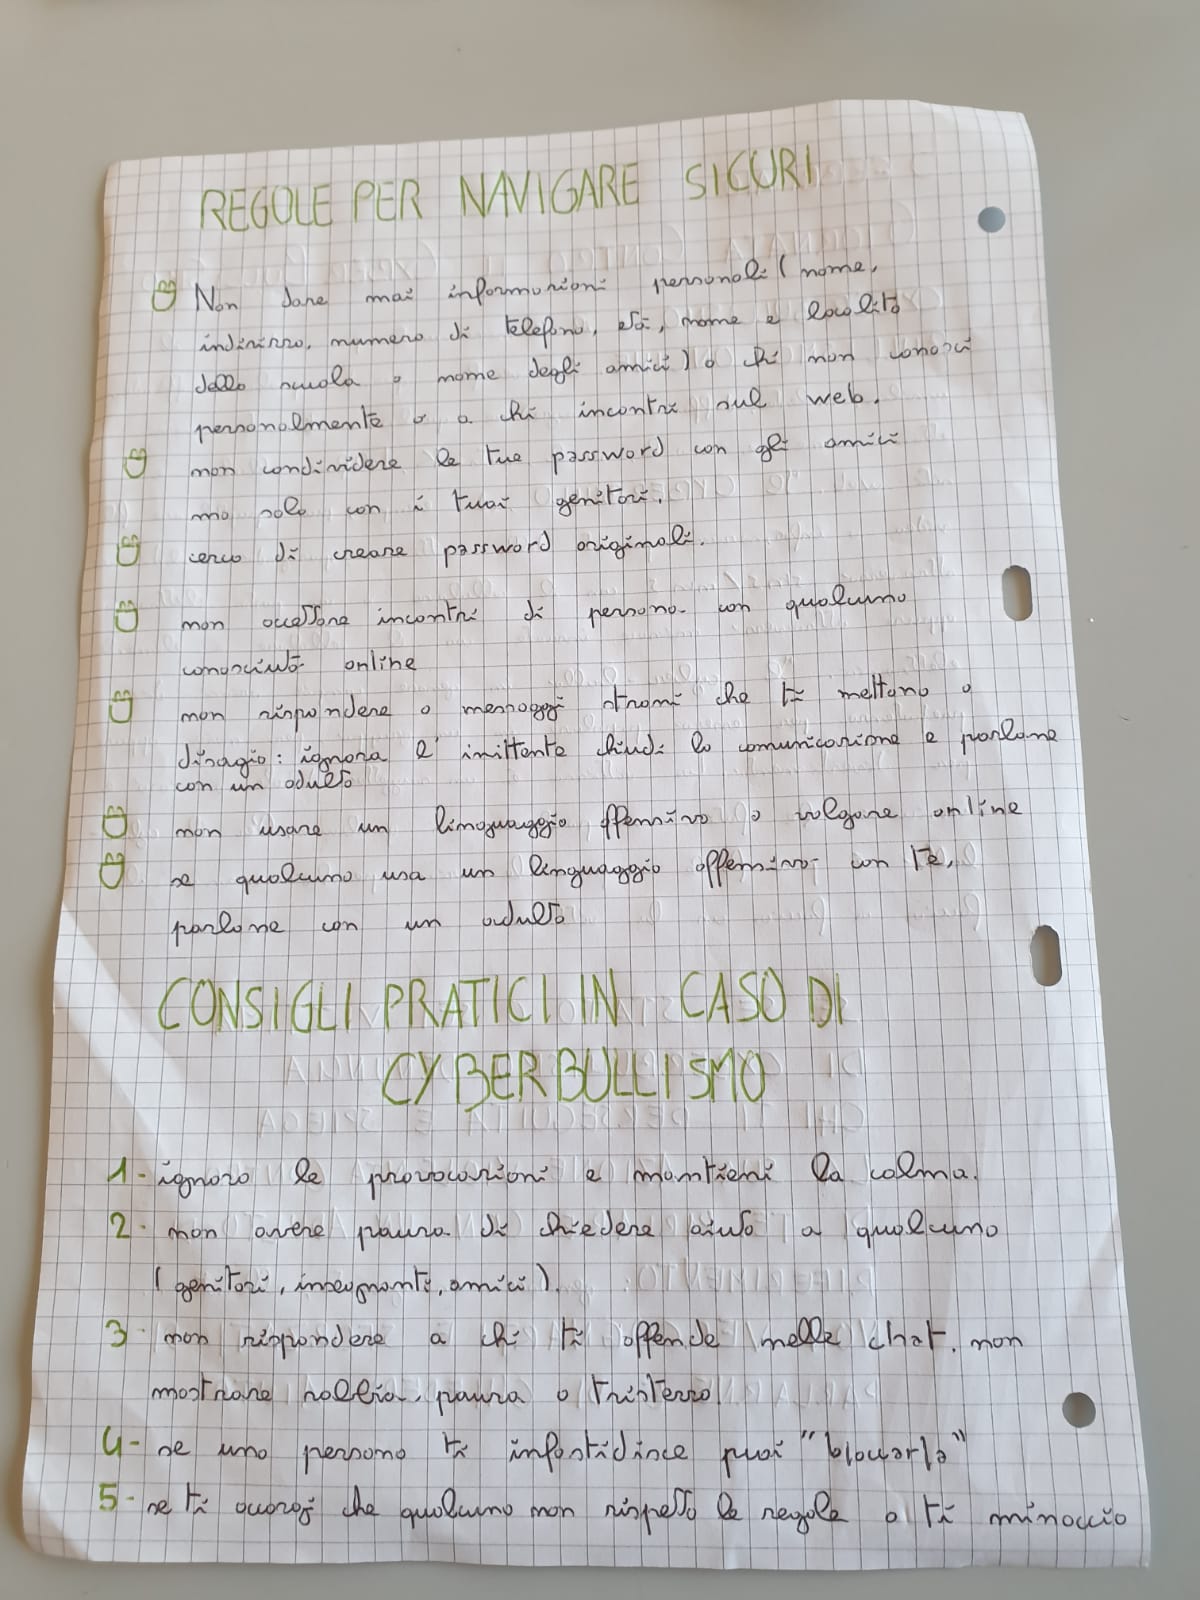 REGOLE PER NAVIGARE SICURI
Non dare mai informazioni personali (nome,
indirizzo, numero di telefono, età, nome e località
della scuola o nome degli amici) a chi non conosci
personalmente o a chi incontri sul web.
non condividere le tue password con gli amici
ma solo con i tuoi genitori.
cerca di creare password originali.
non accettare incontri di persona con qualcuno
conosciuto online
non rispondere a messaggi strani che ti mettono a
disagio: ignora l'imittente chiudi la comunicazione e parlane
con un adulto
non usare un linguaggio offensivo o volgare online
se qualcuno usa un linguaggio offensivo con te,
parlane con un adulto
CONSIGLI PRATICI IN CASO DI
CYBERBULLISMO
1- ignora le provocazioni e mantieni la calma.
2- non avere paura di chiedere aiuto a qualcuno
(genitori, insegnanti, amici).
3- non rispondere a chi ti offende nelle chat. non
mostrare rabbia, paura o tristezza.
4- se una persona ti infastidisce puoi "bloccarla"
5- se ti accorgi che qualcuno non rispetta le regole o ti minaccia